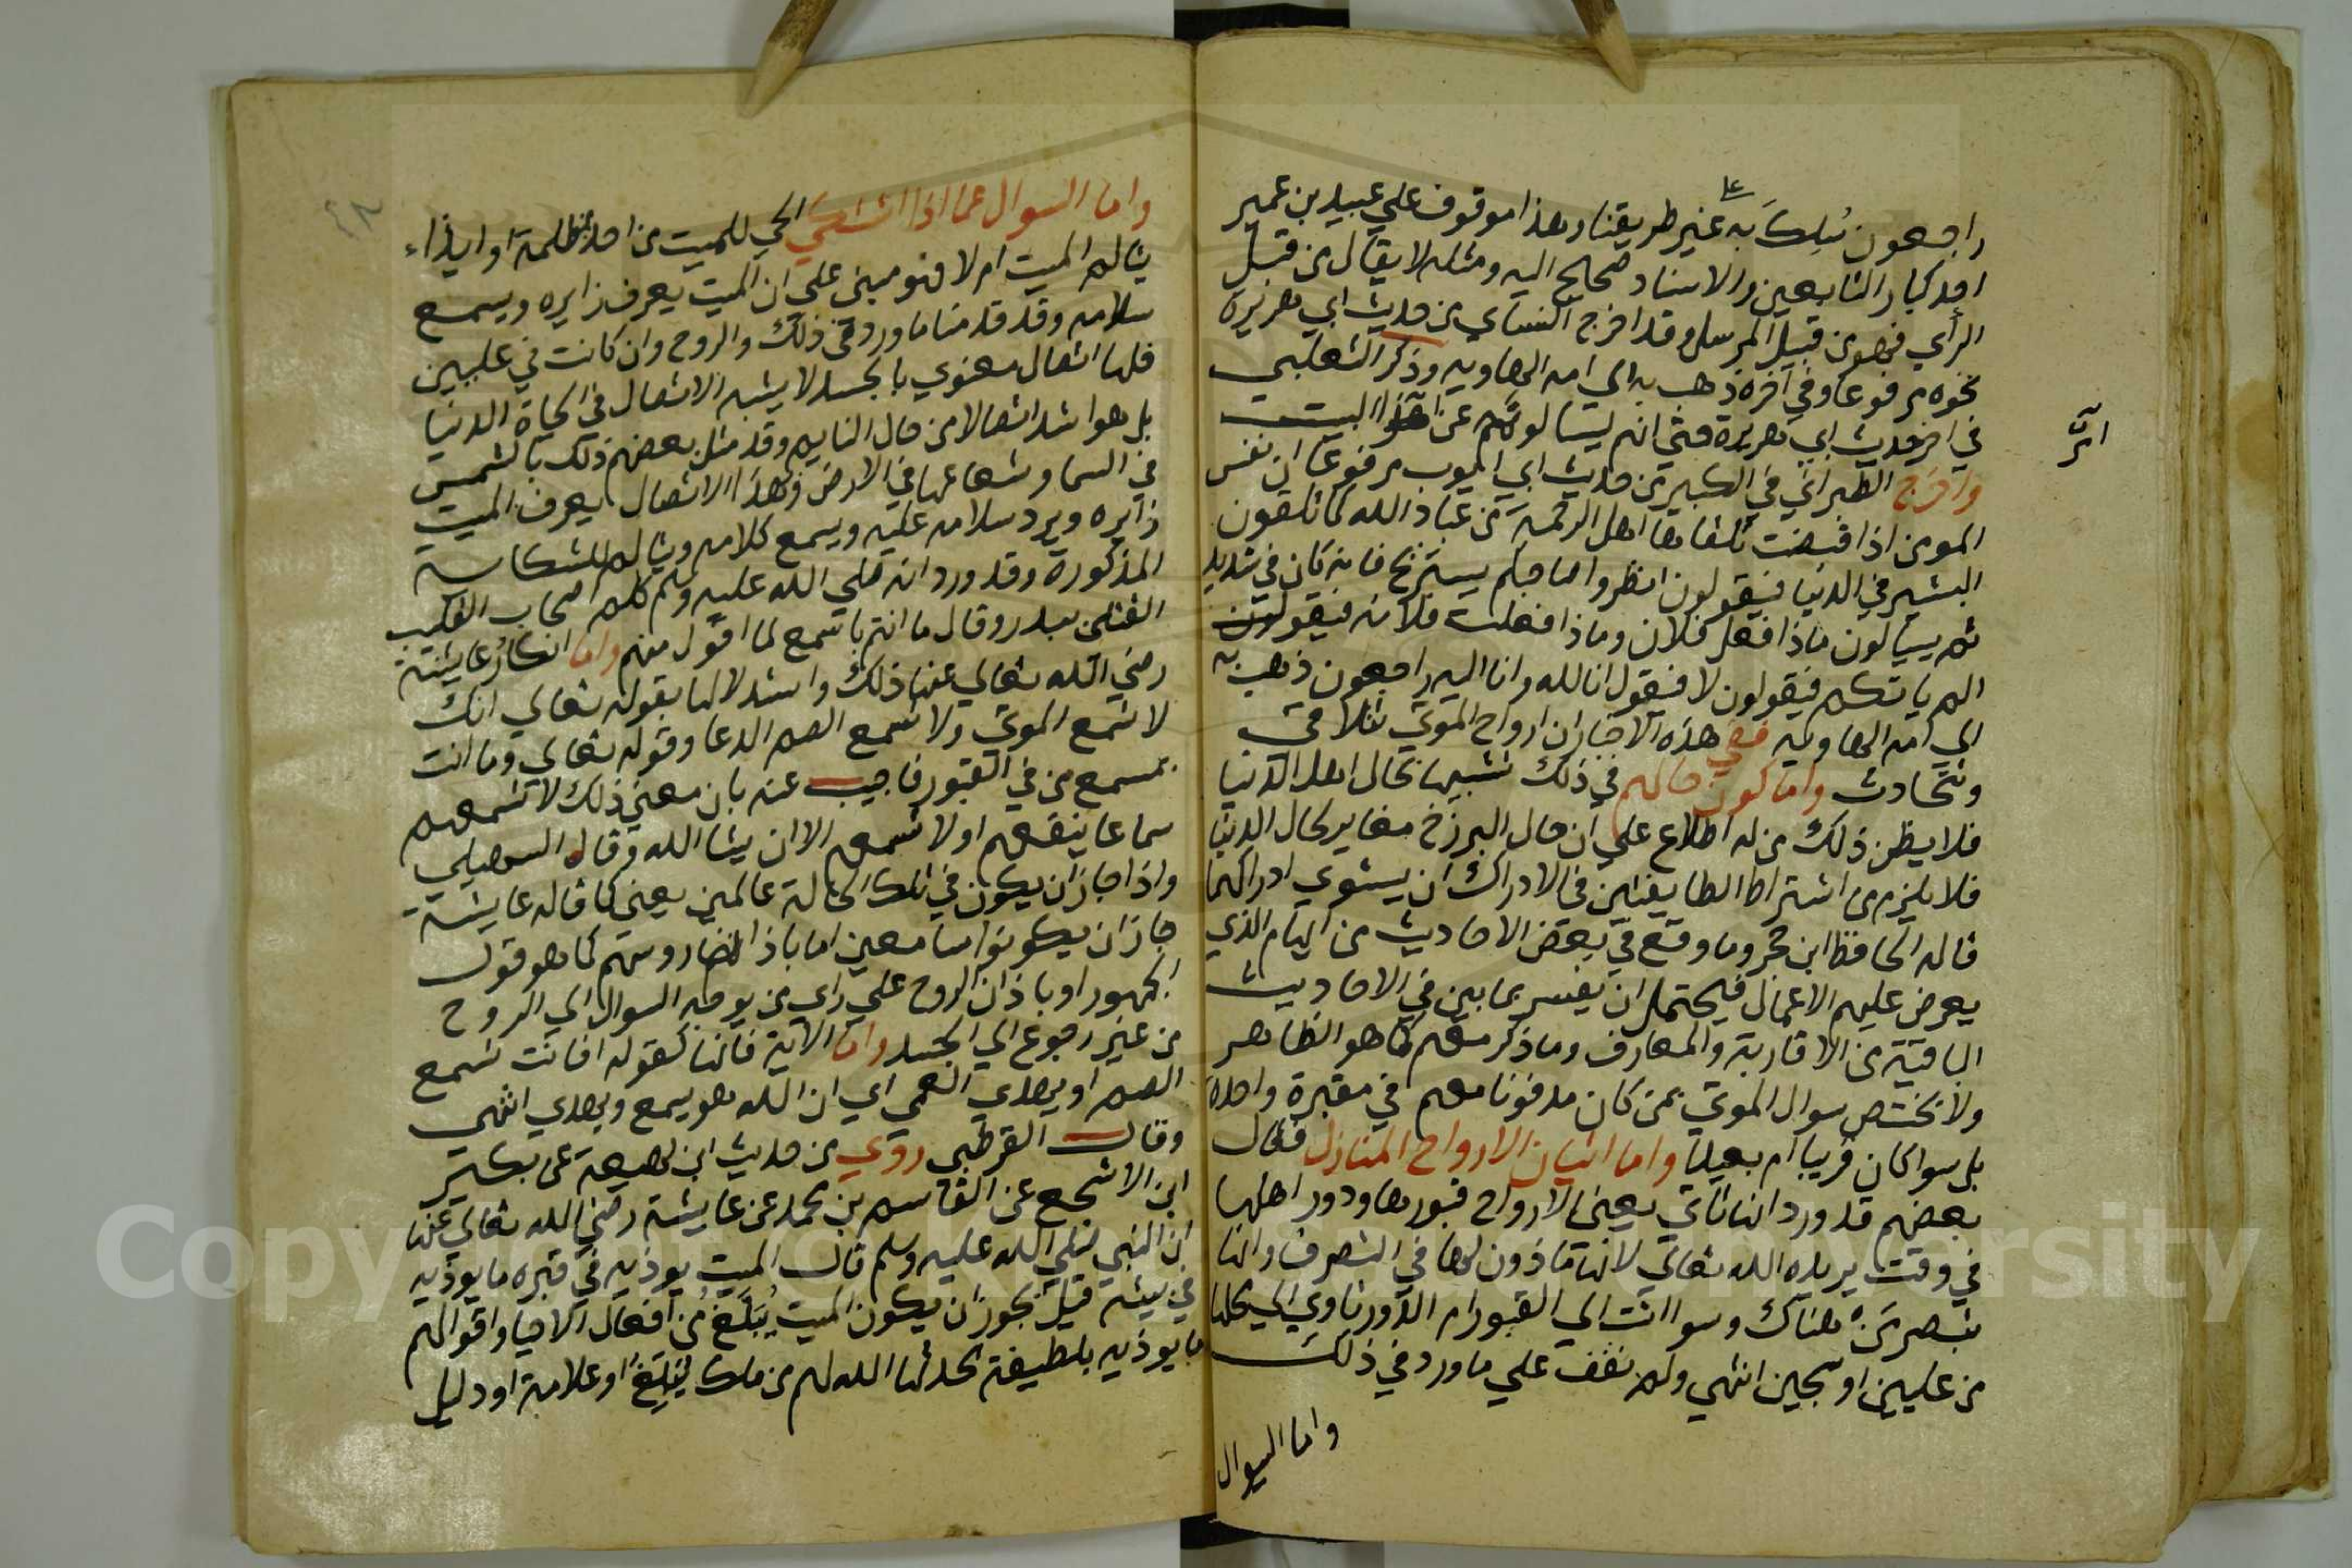 راجعون سُلِكَ به على غير طريقنا وهذا موقوف علي عبيد بن عمير
احد كبار التابعين والاسناد صحيح اليه ومثله لا يقال من قبل
الراي فهو من قبيل المرسل وقد اخرج النسائي من حديث ابي هريرة
نحوه مرفوعا وفي اخره ذهب به الي امه الهاوية وذكر الثعلبي
في اخر حديث ابي هريرة حتي انهم ليسالونهم عن هذا البيت
اهرّ
واخرج الطبراني في الكبير من حديث ابي ايوب مرفوعا ان نفس
المومن اذا قبضت تلقاها اهل الرحمة من عباد الله كما تلقون
البشير في الدنيا فيقولون انظروا صاحبكم يستريح فانه كان في شديد
ثم يسالون ماذا فعل فلان وماذا فعلت فلانه فيقولون
الم ياتكم فيقولون لا فيقول انا لله وانا اليه راجعون ذهب به
الي امه الهاويه ففي هذه الاخبار ان ارواح الموتي تتلاقي
وتتحادث واما كون حالهم في ذلك شبيها بحال اهل الدنيا
فلا يظن ذلك من له اطلاع علي ان حال البرزخ مغاير لحال الدنيا
فلا يلزم من اشتراك الطايفتين في الادراك ان يستوي ادراكهما
قاله الحافظ ابن حجر وما وقع في بعض الاحاديث من ابهام الذي
يعرض عليهم الاعمال فيحتمل ان يفسر بما بين في الاحاديث
الباقية من الاقارب والمعارف وما ذكر معهم كما هو الظاهر
ولا يختص سوال الموتي بمن كان مدفونا معهم في مقبرة واحدة
بل سوا كان قريبا ام بعيدا واما اتيان الارواح المنازل فقال
بعضهم قد ورد انها تاتي يعني الارواح قبورها ودور اهلها
في وقت يريده الله تعالي لانها ماذون لها في التصرف وانها
تبصر من هناك وسوا اتت الي القبور ام الدور تاوي الي محلها
من عليين او سجين انتهي ولم نقف علي ما ورد في ذلك
واما السوال
واما السوال عما اذا اشتكي الحي للميت من احد بمظلمة او ايذاء
يتالم الميت ام لا فهو مبني علي ان الميت يعرف زايره ويسمع
سلامه وقد قدمنا ما ورد في ذلك والروح وان كانت في عليين
فلها اتصال معنوي بالجسد لا يشبه الاتصال في الحياة الدنيا
بل هو اشد اتصالا من حال النايم وقد مثل بعضهم ذلك بالشمس
في السما وشعاعها في الارض وبهذا الاتصال يعرف الميت
زايره ويرد سلامه عليه ويسمع كلامه ويتالم للشكاية
المذكورة وقد ورد انه صلي الله عليه وسلم كلم اصحاب القليب
القتلي ببدر وقال ما انتم باسمع لما اقول منهم واما انكار عايشة
رضي الله تعالي عنها ذلك واستدلالها بقوله تعالي انك
لا تسمع الموتي ولا تسمع الصم الدعا وقوله تعالي وما انت
بمسمع من في القبور فاجيب عنه بان معني ذلك لا تسمعهم
سماعا ينفعهم او لا تسمعهم الا ان يشا الله وقال السهيلي
واذا جاز ان يكون في تلك الحالة عالمين يعني كما قاله عايشة
جاز ان يكونوا سامعين اما باذان روسهم كما هو قول
الجمهور او باذان الروح علي راي من يوجه السوال الي الروح
من غير رجوع الي الجسد واما الاية فانها كقوله افانت تسمع
الصم او تهدي العمي اي ان الله هو يسمع ويهدي انتهي
وقال القرطبي روي من حديث ابن لهيعة عن بكير
ابن الاشجع عن القاسم بن محمد عن عايشة رضي الله تعالي عنها
ان النبي صلي الله عليه وسلم قال الميت يوذيه في قبره ما يوذيه
في بيته قيل يجوز ان يكون الميت يُبَلَّغُ من افعال الاحيا واقوالهم
ما يوذيه بلطيفة يحدثها الله لهم من ملك يُبَلِّغُ او علامة او دليل